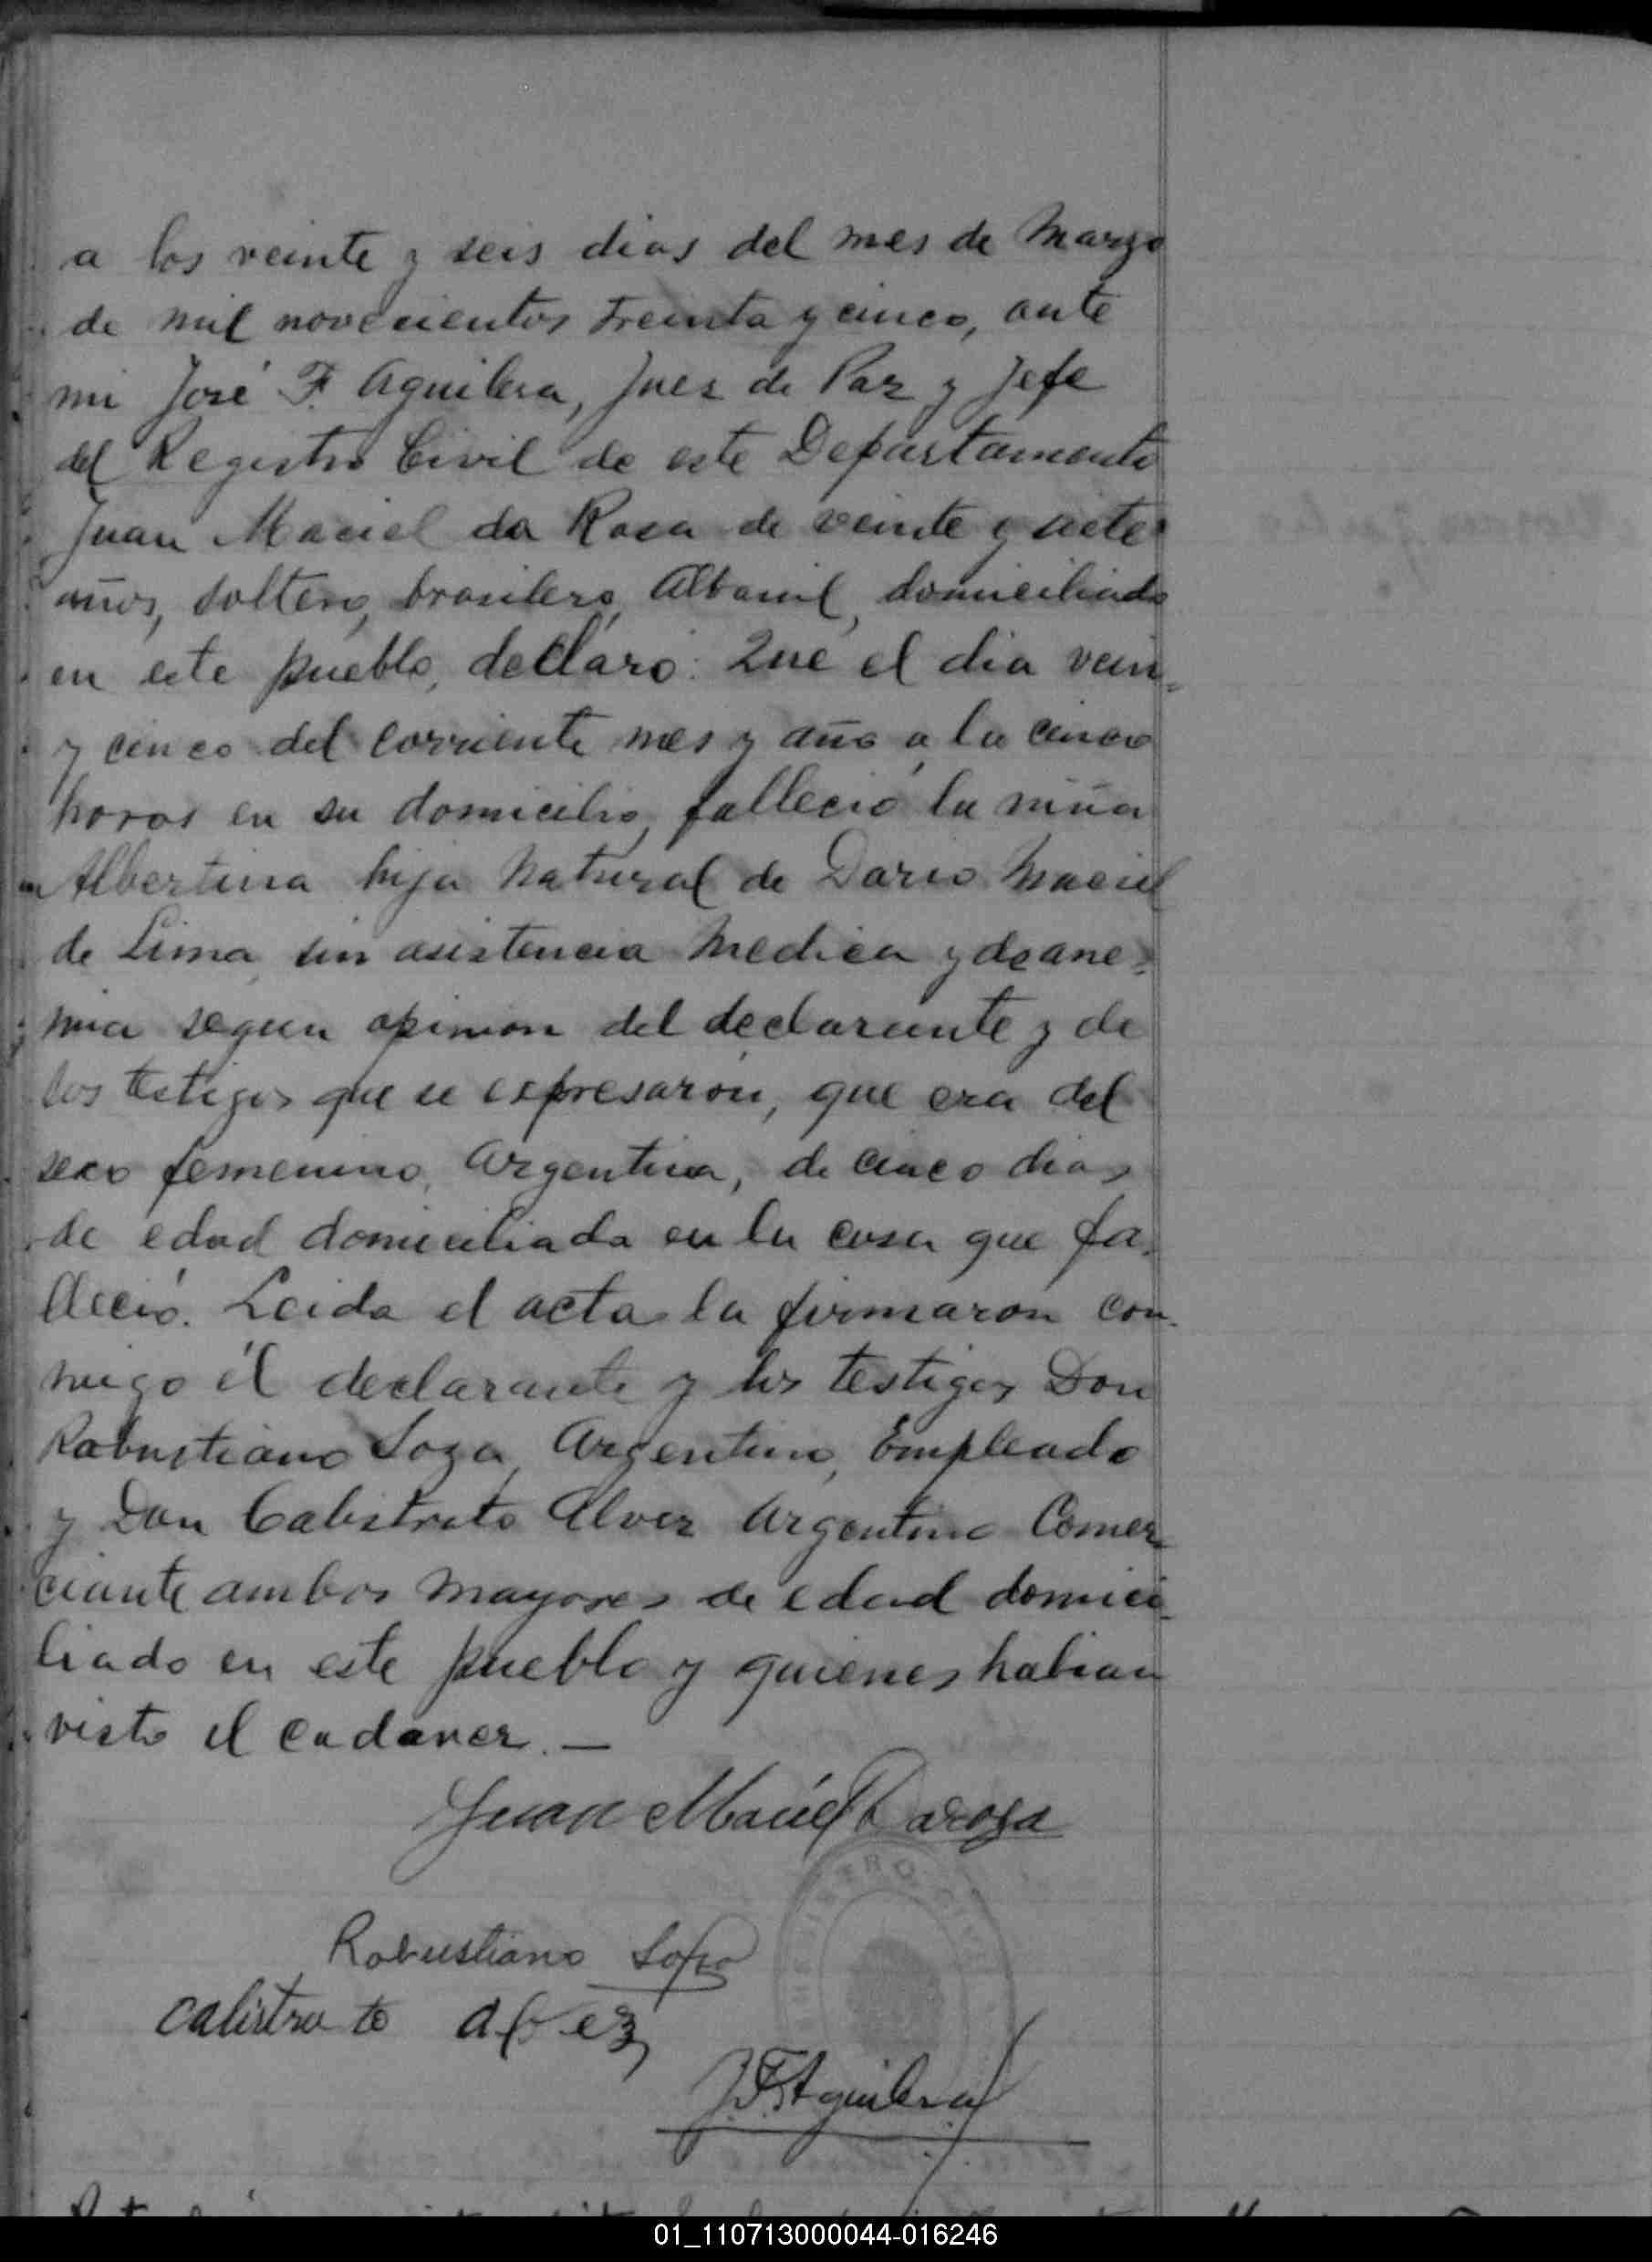 a los veinte y seis dias del mes de Marzo
de mil novecientos treinta y cinco, ante
mi José F. Aguilera, Juez de Paz y Jefe
del Registro Civil de este Departamento
Juan Maciel da Rosa de veinte y siete
años, soltero, brasilero, Albanil, domiciliado
en este pueblo, declaró: Que el dia vein
y cinco del corriente mes y año a la cinco
horas en su domicilio, falleció la niña
Albertina hija natural de Dario Maciel
de Lima sin asistencia medica y de ane-
mia segun opinion del declarante y de
los testigos que se expresaron, que era del
sexo femenino, Argentina, de cinco dias
de edad domiciliada en la casa que fa-
lleció. Leida el acta la firmaron con-
migo el declarante y los testigos Don
Robustiano Soza, Argentino, Empleado
y Don Calistrato Alvez Argentino Comer
ciante ambos mayores de edad domici-
liado en este pueblo y quienes habian
visto el cadaver. —
Juan Maciel Daroza
Robustiano Soza
Calistrato Alvez
J. F. Aguilera
01_110713000044-016246